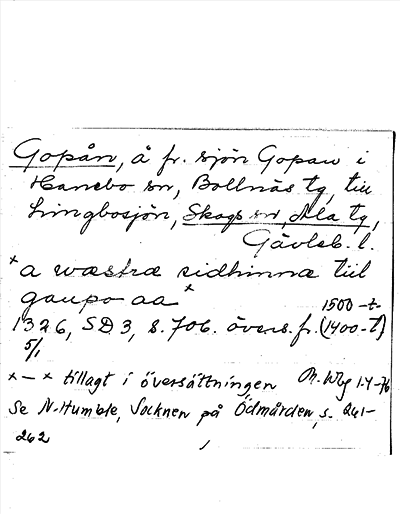 Gopån, å fr. sjön Gopan i
Hanebo sn, Bollnäs tg, till
Lingbosjön, Skogs sn, Ala tg,
Gävleb. l.
x a wæstræ sidhinnæ tiil
gaupo aa x
1500 -t-
1326, SD 3, s. 706. övers. fr. (1400-t)
5/1
x–x tillagt i översättningen
1-4-76
Se N-Humble, Socknen på Ödmården, s. 261-
262